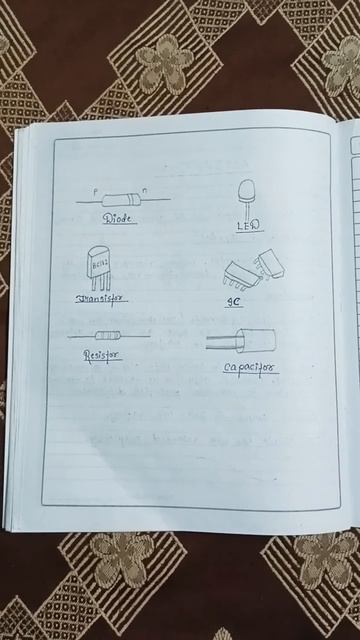 P n
Diode
LED
BC182
Transistor
IC
Resistor
Capacitor